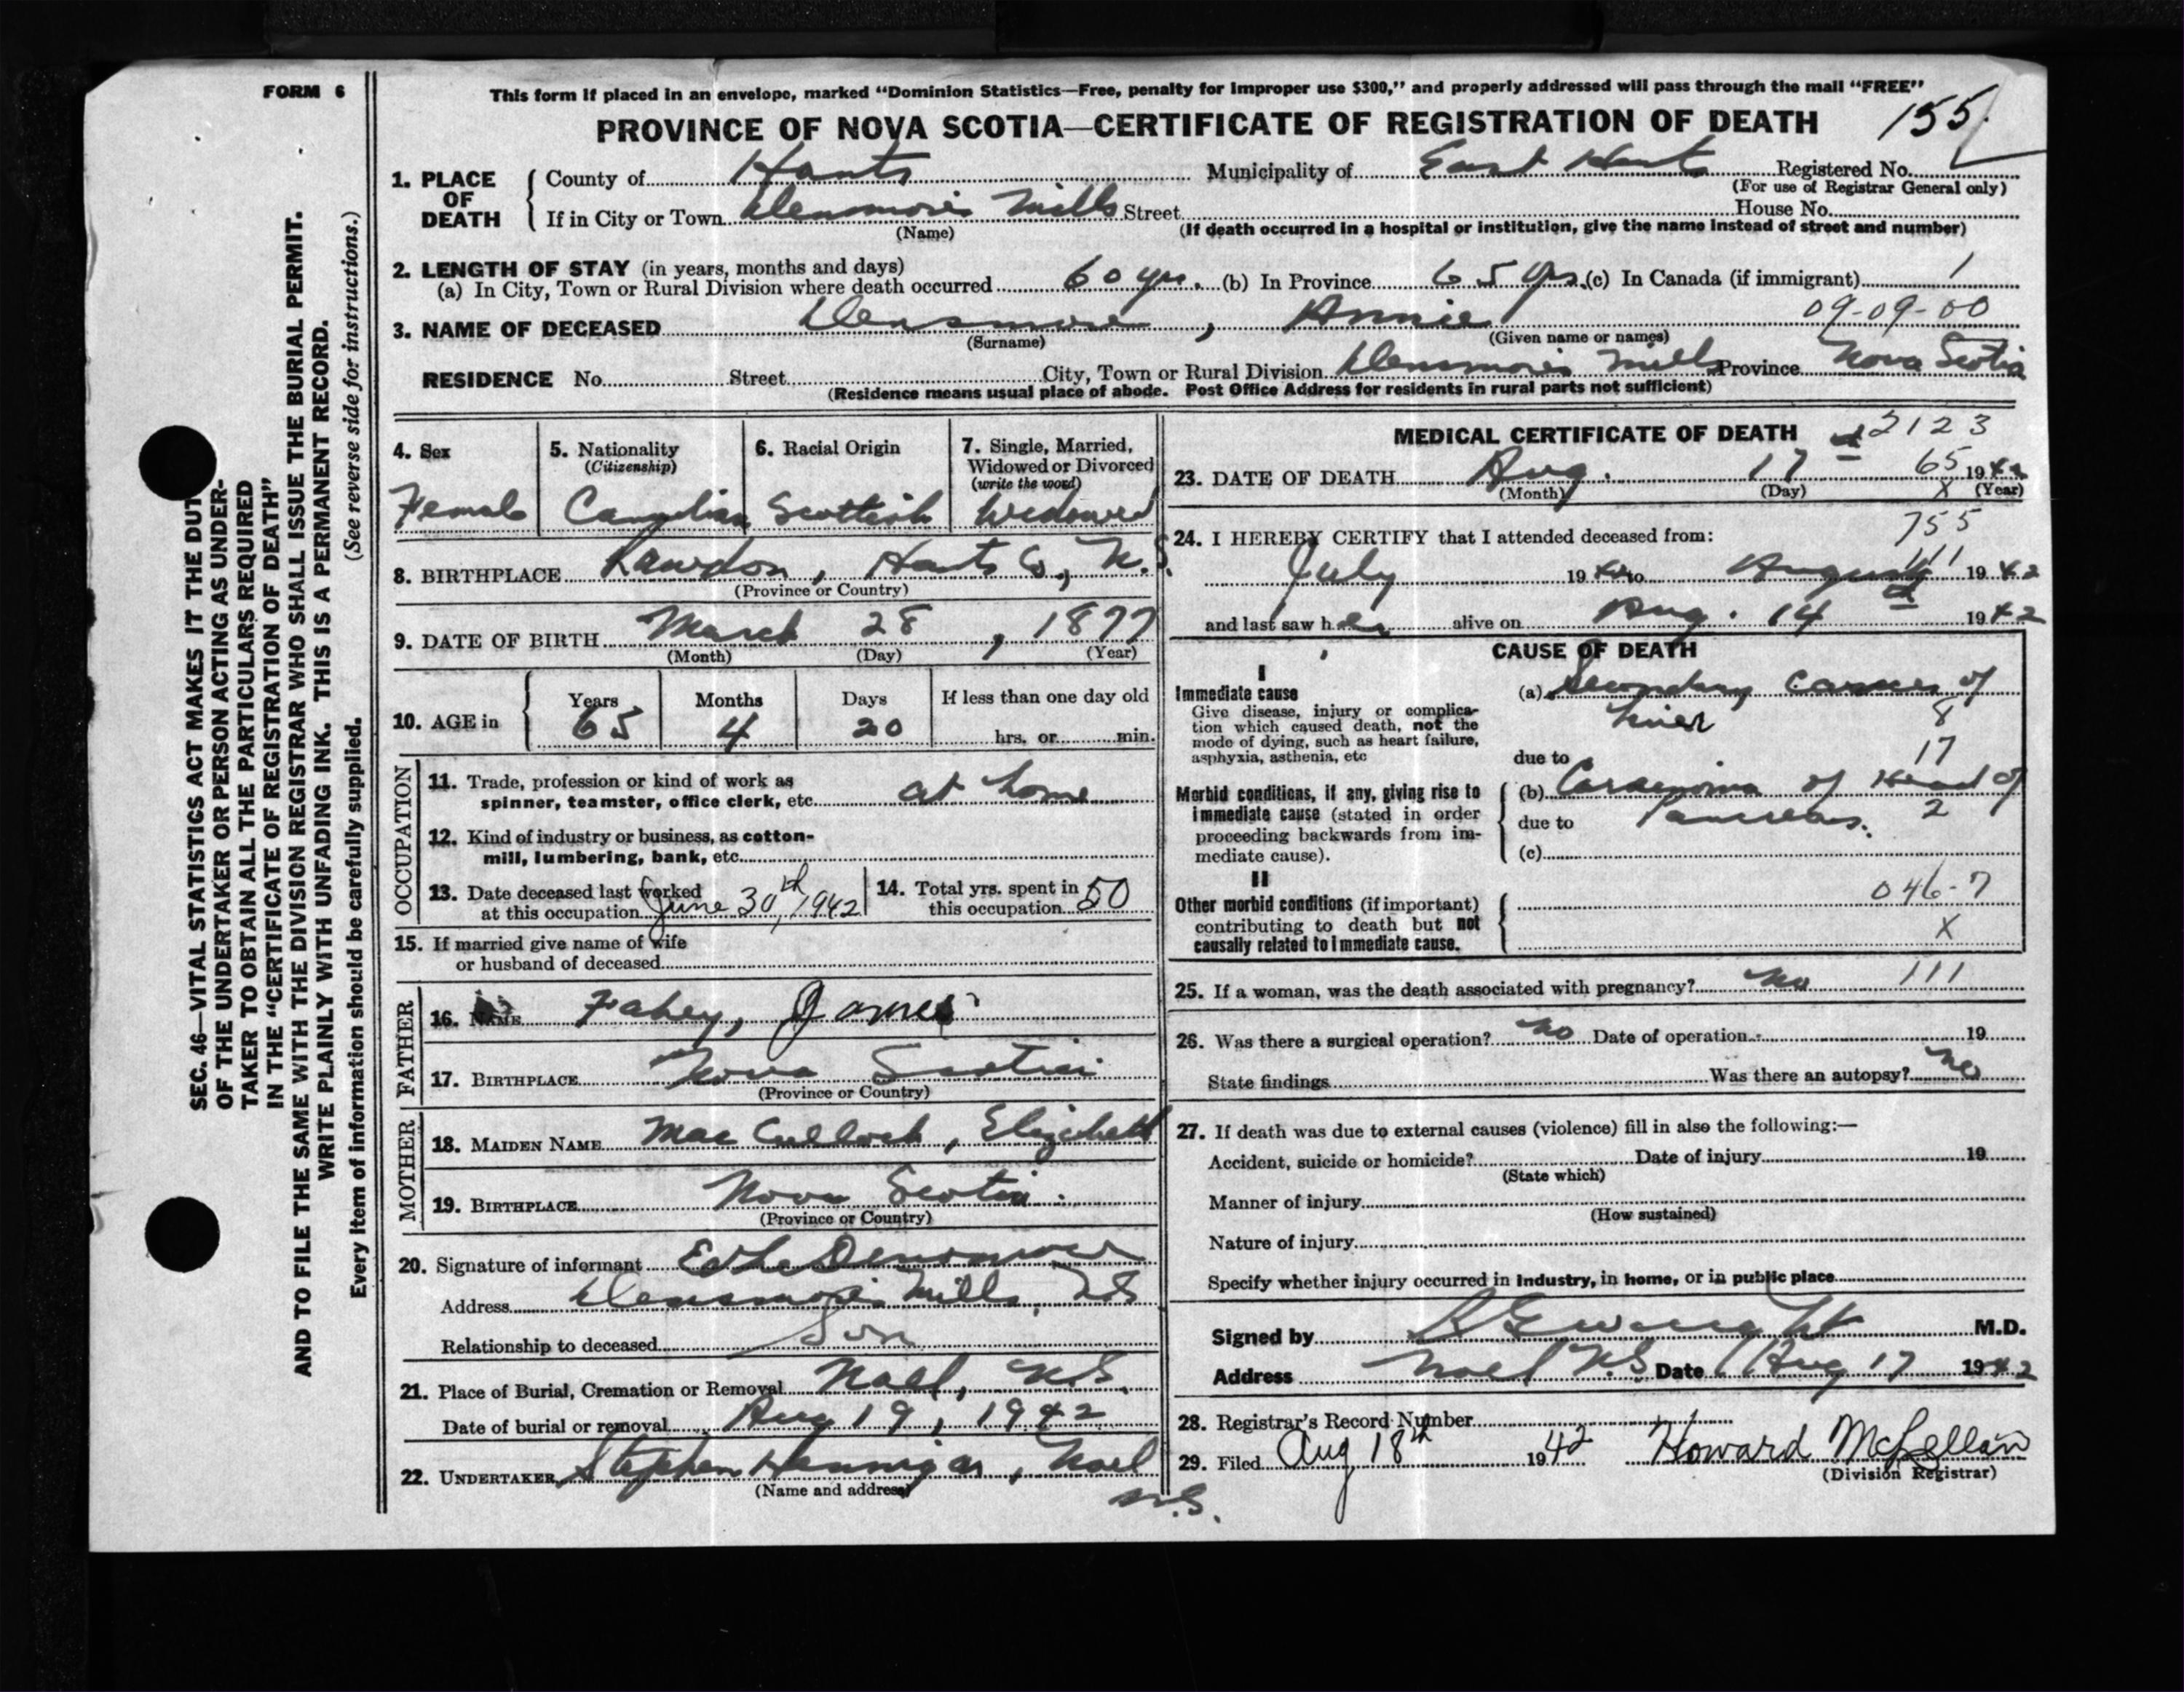 FORM 6
This form if placed in an envelope, marked "Dominion Statistics—Free, penalty for improper use $300," and properly addressed will pass through the mail "FREE"
PROVINCE OF NOVA SCOTIA—CERTIFICATE OF REGISTRATION OF DEATH 155
1. PLACE OF DEATH
County of Hants Municipality of East Hants Registered No.
(For use of Registrar General only)
If in City or Town Densmore's Mills Street House No.
(Name) (If death occurred in a hospital or institution, give the name instead of street and number)
2. LENGTH OF STAY (in years, months and days)
(a) In City, Town or Rural Division where death occurred 60 yrs. (b) In Province 65 yrs. (c) In Canada (if immigrant) /
09-09-00
3. NAME OF DECEASED Densmore, Annie
(Surname) (Given name or names)
RESIDENCE No. Street City, Town or Rural Division Densmore's Mills Province Nova Scotia
(Residence means usual place of abode. Post Office Address for residents in rural parts not sufficient)
4. Sex
Female
5. Nationality
(Citizenship)
Canadian
6. Racial Origin
Scottish
7. Single, Married,
Widowed or Divorced
(write the word)
Widowed
8. BIRTHPLACE Rawdon, Hants Co., N.S.
(Province or Country)
9. DATE OF BIRTH March 28, 1877
(Month) (Day) (Year)
10. AGE in
Years Months Days If less than one day old
65 4 20 hrs. or min.
OCCUPATION
11. Trade, profession or kind of work as
spinner, teamster, office clerk, etc. at home
12. Kind of industry or business, as cotton-
mill, lumbering, bank, etc.
13. Date deceased last worked
at this occupation June 30th, 1942
14. Total yrs. spent in
this occupation 50
15. If married give name of wife
or husband of deceased
FATHER
16. NAME Fahey, James
17. BIRTHPLACE Nova Scotia
(Province or Country)
MOTHER
18. MAIDEN NAME MacCulloch, Elizabeth
19. BIRTHPLACE Nova Scotia.
(Province or Country)
20. Signature of informant Densmore
Address Densmore's Mills, N.S.
Relationship to deceased Son
21. Place of Burial, Cremation or Removal Noel, N.S.
Date of burial or removal Aug 19, 1942
22. UNDERTAKER Stephen Hennigar, Noel
(Name and address)
N.S.
MEDICAL CERTIFICATE OF DEATH 2123
23. DATE OF DEATH Aug. 17 65 1942
(Month) (Day) X (Year)
755
24. I HEREBY CERTIFY that I attended deceased from:
July 1942 to August 1942
and last saw her alive on Aug. 14 1942
CAUSE OF DEATH
I
Immediate cause
Give disease, injury or complica-
tion which caused death, not the
mode of dying, such as heart failure,
asphyxia, asthenia, etc
(a) Secondary Cancer of
Liver 8
due to 17
Morbid conditions, if any, giving rise to
immediate cause (stated in order
proceeding backwards from im-
mediate cause).
(b) Carcinoma of Head of
due to Pancreas. 2
(c)
II
Other morbid conditions (if important)
contributing to death but not
causally related to immediate cause.
046-7
X
25. If a woman, was the death associated with pregnancy? No 111
26. Was there a surgical operation? No Date of operation 19
State findings Was there an autopsy? No
27. If death was due to external causes (violence) fill in also the following:—
Accident, suicide or homicide? Date of injury 19
(State which)
Manner of injury
(How sustained)
Nature of injury
Specify whether injury occurred in industry, in home, or in public place
Signed by M.D.
Address Noel N.S. Date Aug 17 1942
28. Registrar's Record Number
29. Filed Aug 18th 1942 Howard McLellan
(Division Registrar)
SEC. 46—VITAL STATISTICS ACT MAKES IT THE DUTY
OF THE UNDERTAKER OR PERSON ACTING AS UNDER-
TAKER TO OBTAIN ALL THE PARTICULARS REQUIRED
IN THE "CERTIFICATE OF REGISTRATION OF DEATH"
AND TO FILE THE SAME WITH THE DIVISION REGISTRAR WHO SHALL ISSUE THE BURIAL PERMIT.
WRITE PLAINLY WITH UNFADING INK. THIS IS A PERMANENT RECORD.
Every item of information should be carefully supplied. (See reverse side for instructions.)